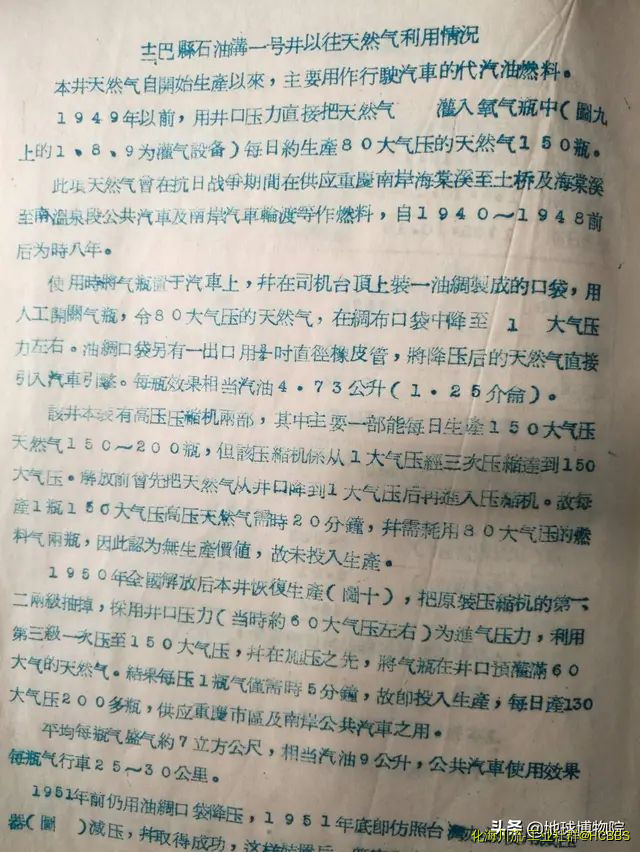 十二巴縣石油溝一号井以往天然气利用情况
本井天然气自開始生産以來，主要用作行駛汽車的代汽油燃料。
1949年以前，用井口压力直接把天然气 灌入氧气瓶中（圖九
上的1.8.9为灌气設备）每日約生産80大气压的天然气150瓶。
此項天然气曾在抗日战爭期間在供应重慶南岸海棠溪至土桥及海棠溪
至南溫泉段公共汽車及南岸汽車輪渡等作燃料，自1940～1948前
后为時八年。
使用時將气瓶置于汽車上，幷在司机台頂上裝一油綢製成的口袋，用
人工開關气瓶，令80大气压的天然气，在綢布口袋中降至 1 大气压
力左右。油綢口袋另有一出口用 吋直徑橡皮管，將降压后的天然气直接
引入汽車引擎。每瓶效果相当汽油4.73公升（1.25介侖）。
該井本裝有高压压縮机兩部，其中主要一部能每日生產150大气压
天然气150～200瓶，但該压縮机係从1大气压經三次压縮達到150
大气压。解放前曾先把天然气从井口降到1大气压后再進入压縮机。故每
產1瓶150大气压高压天然气需時20分鐘，幷需耗用80大气压的燃
料气兩瓶，因此認为無生產價値，故未投入生產。
1950年全國解放后本井恢復生產（圖十），把原裝压縮机的第一、
二兩級抽掉，採用井口压力（当時約60大气压左右）为進气压力，利用
第三級一次压至150大气压，幷在施压之先，將气瓶在井口預灌滿60
大气的天然气。結果每压1瓶气僅需時5分鐘，故卽投入生產；每日產130
大气压200多瓶，供应重慶市區及南岸公共汽車之用。
平均每瓶气盛气約7立方公尺，相当汽油9公升，公共汽車使用效果
每瓶气行車25～30公里。
1951年前仍用油綢口袋降压，1951年底卽仿照台
器（圖 ）減压，幷取得成功，这样
头条 @地球博物院